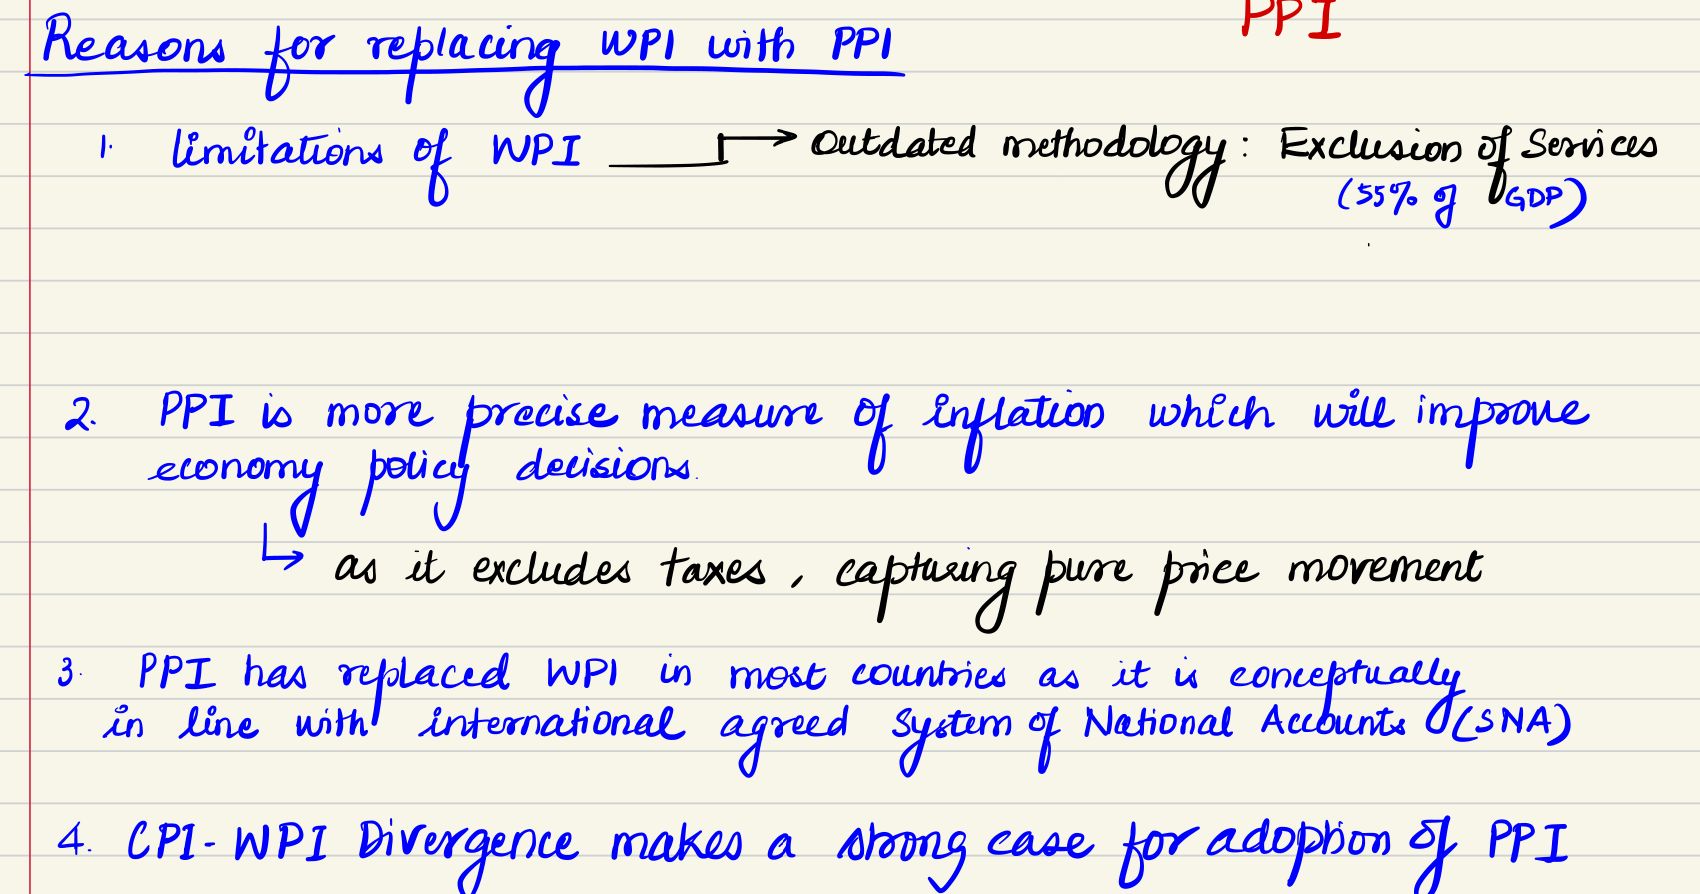 PPI
Reasons for replacing WPI with PPI
1. limitations of WPI → Outdated methodology: Exclusion of Services
(55% of GDP)
2. PPI is more precise measure of inflation which will improve
economy policy decisions.
↳ as it excludes taxes, capturing pure price movement
3. PPI has replaced WPI in most countries as it is conceptually
in line with international agreed System of National Accounts (SNA)
4. CPI-WPI Divergence makes a strong case for adoption of PPI